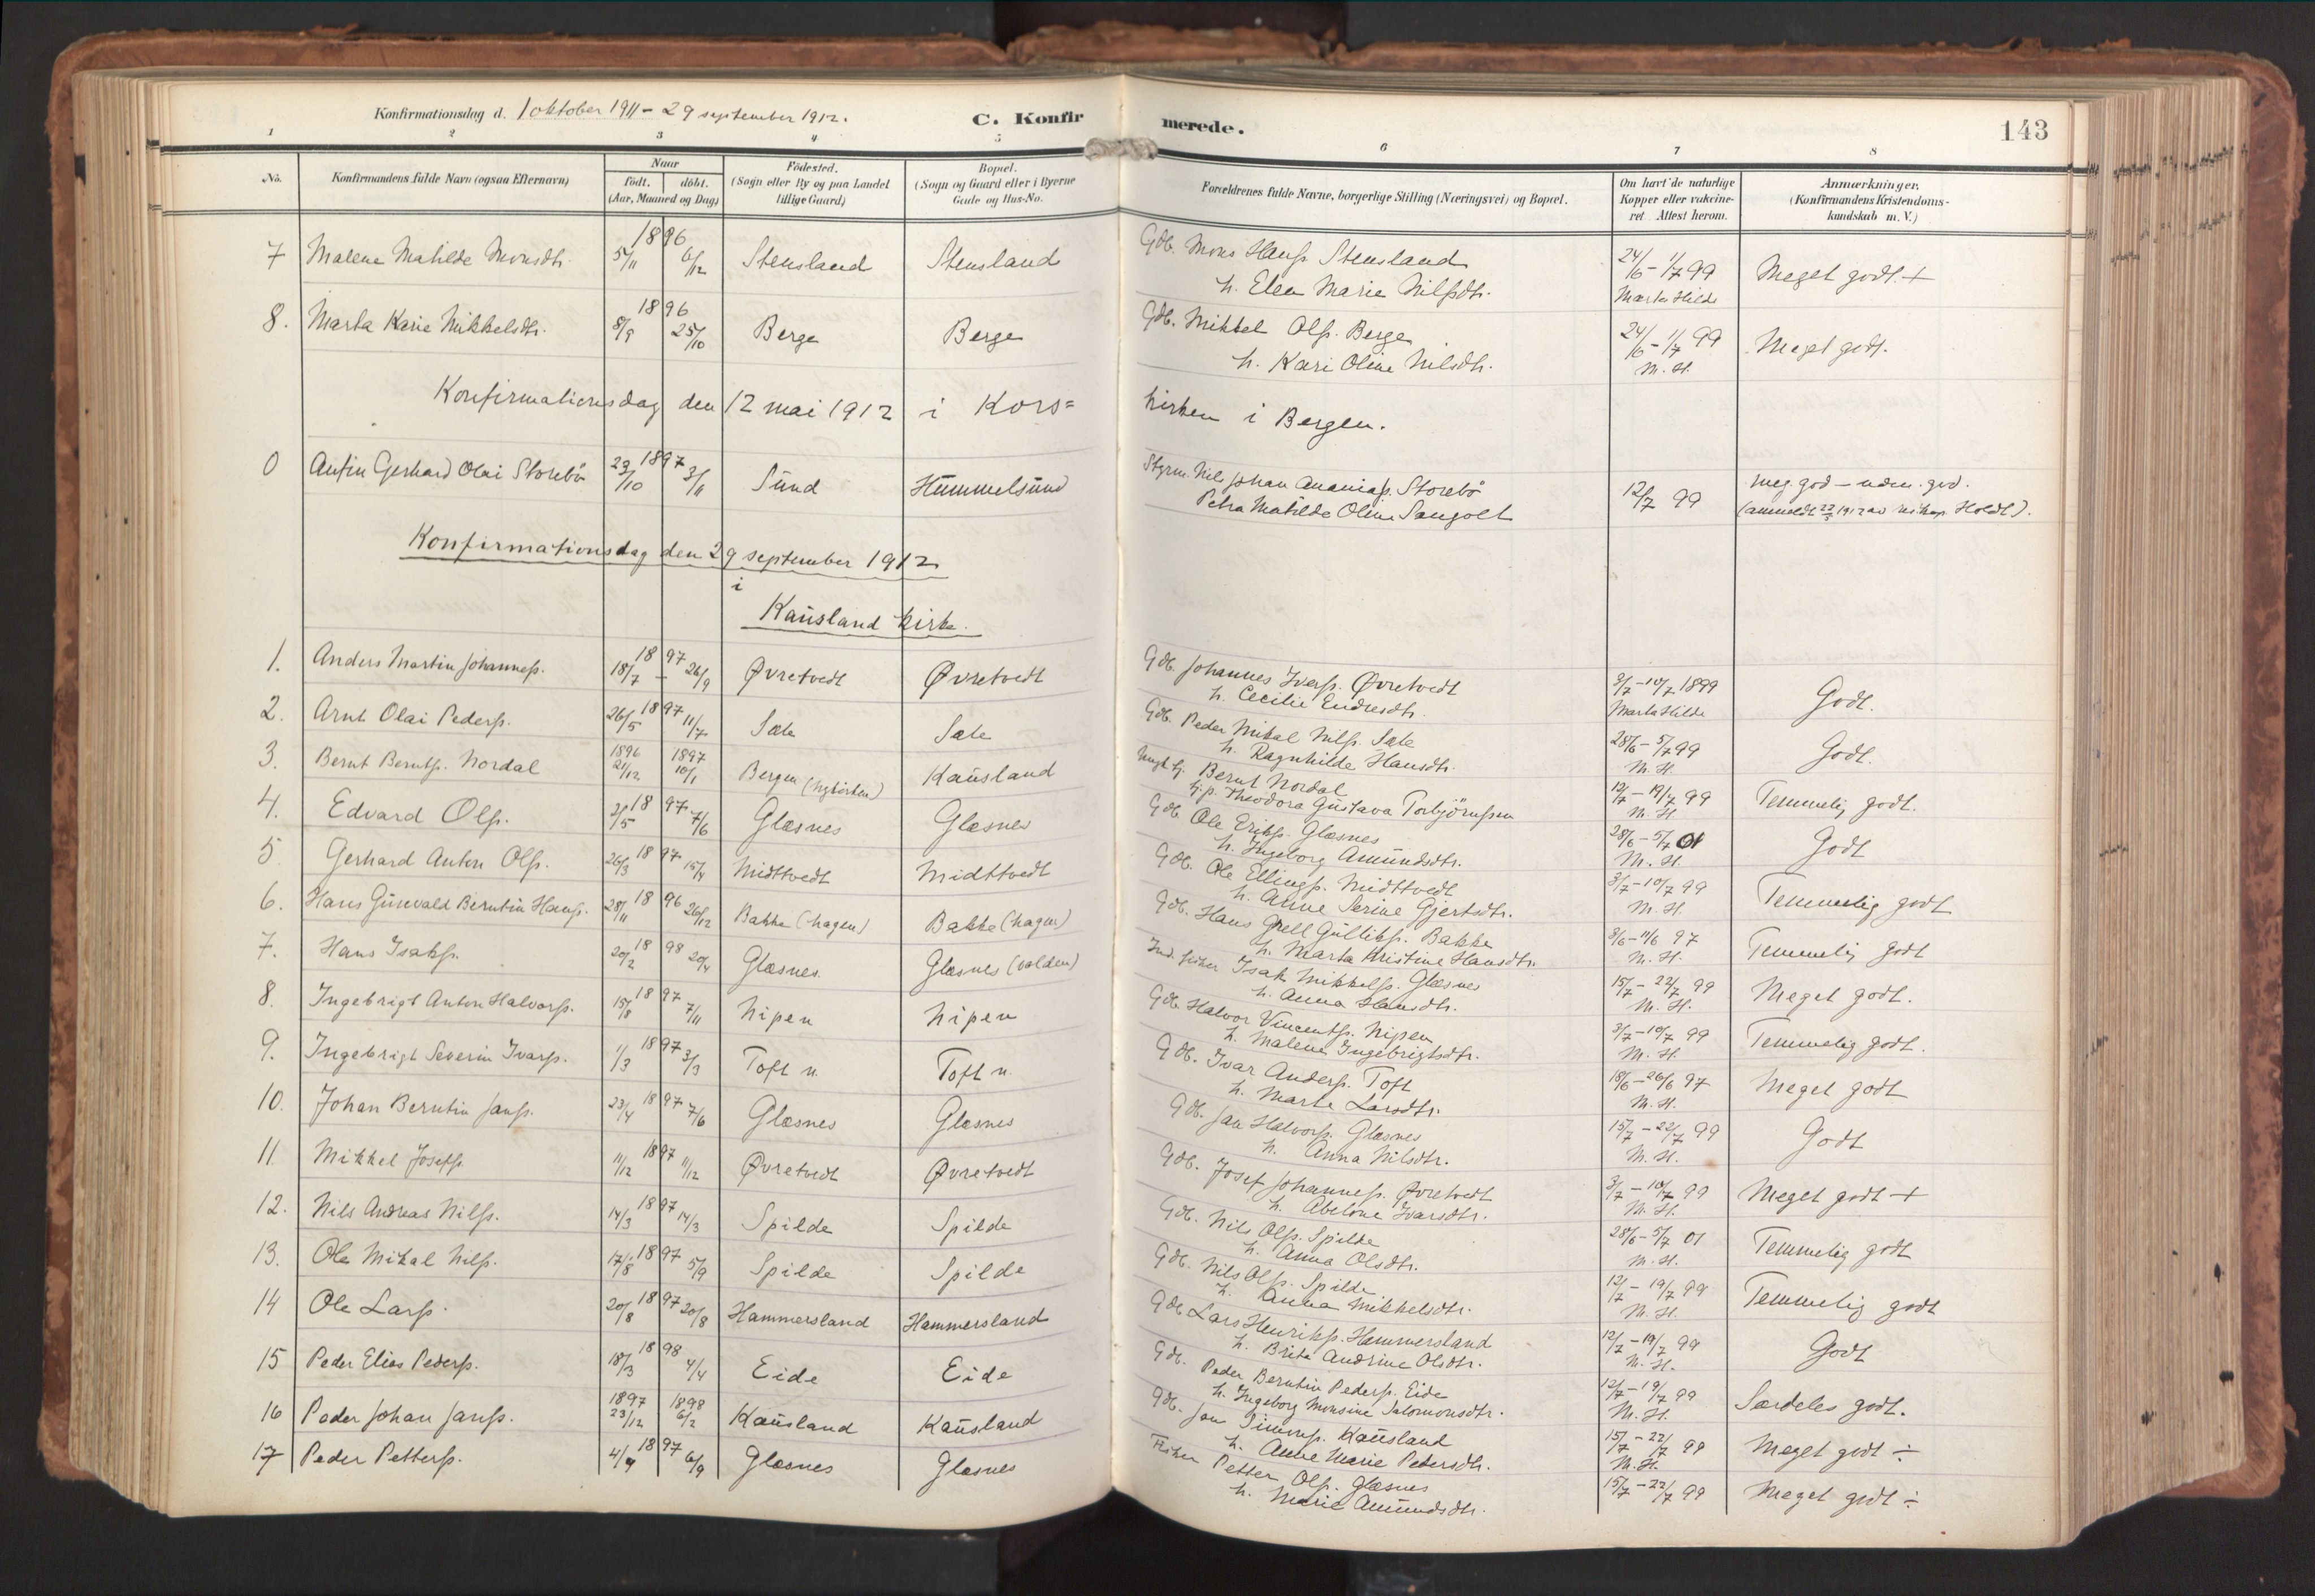 Konfirmationsdag d. 1 oktober 1911 – 29 september 1912.
C. Konfirmerede.
143
1 2 3 4 5 6 7 8
No.
Konfirmandens fulde Navn (ogsaa Efternavn)
Naar
født. døbt.
(Aar, Maaned og Dag)
Fødested.
(Sogn eller By og paa Landet
tillige Gaard)
Bopæl.
(Sogn og Gaard eller i Byerne
Gade og Hus-No.
Forældrenes fulde Navne, borgerlige Stilling (Næringsvei) og Bopæl.
Om havt de naturlige
Kopper eller vakcine-
ret Attest herom.
Anmærkninger.
(Konfirmandens Kristendoms-
kundskab m. V.)
7 Malene Matilde Monsdtr. 1896 5/11 6/12 Stensland Stensland Gdb. Mons Hansſ. Stensland 24/6 – 1/7 99 Meget godt +
h. Elen Marie Nilsdtr. Marta Hilde
8. Marta Karie Mikkelsdtr. 1896 8/9 25/10 Berge Berge Gdb. Mikkel Olſ. Berge 24/6 – 1/7 99 Meget godt.
h. Kari Oline Nilsdtr. M. H.
Konfirmationsdag den 12 mai 1912 i Kors=kirken i Bergen.
0 Anfin Gerhard Olai Storebö 1897 23/10 3/11 Sund Hummelsund Styrm. Nils Johan Ananiasſ. Storebö 12/7 99 meg. god –
Petra Matilde Oline Sangolt
Konfirmationsdag den 29 september 1912
i
Kausland kirke.
1. Anders Martin Johannesſ. 1897 18/7 – 26/9 Øvretvedt Øvretvedt Gdb. Johannes Iverſ. Øvretvedt 3/7 – 10/7 1899 Godt.
h. Cecilie Endresdtr. Marta Hilde
2. Arnt Olai Pederſ. 1897 26/5 11/7 Sæle Sæle Gdb. Peder Mikal Nilſ. Sæle 28/6 – 5/7 99 Godt.
h. Ragnhilde Hansdtr. M. H.
3. Bernt Berntſ. Nordal 1896 21/12 1897 10/1 Bergen (nykirken) Kausland Bernt Nordal 12/7 – 19/7 99 Temmelig godt.
Theodora Gustava Torbjörnsen M. H.
4. Edvard Olſ. 1897 2/5 7/6 Glæsnes Glæsnes Gdb. Ole Erikſ. Glæsnes 28/6 – 5/7 01 Godt
h. Ingeborg Amundsdtr. M. H.
5. Gerhard Anton Olſ. 1897 26/3 15/4 Midttvedt Midttvedt Gdb. Ole Ellingſ. Midttvedt 3/7 – 10/7 99 Temmelig godt
h. Anne Serine Gjertsdtr. M. H.
6. Hans Gunevald Berntin Hansſ. 1896 28/11 26/12 Bakke (hagen) Bakke (hagen) Gdb. Hans Grell Gullikſ. Bakke 3/6 – 11/6 97 Temmelig godt
h. Marta Kristine Hansdtr. M. H.
7. Hans Isakſ. 1898 20/2 20/4 Glæsnes Glæsnes (valden) Ind. fisker Isak Mikkelſ. Glæsnes 15/7 – 22/7 99 Meget godt.
h. Anna Hansdtr. M. H.
8. Ingebrigt Anton Halvorſ. 1897 15/8 7/11 Nipen Nipen Gdb. Halvor Vincentſ. Nipen 3/7 – 10/7 99 Temmelig godt.
h. Malene Ingebrigtsdtr. M. H.
9. Ingebrigt Severin Ivarſ. 1897 1/3 3/3 Toft n. Toft n. Gdb. Ivar Anderſ. Toft 18/6 – 26/6 97 Meget godt
h. Marte Larsdtr. M. H.
10. Johan Berntin Janſ. 1897 23/4 7/6 Glæsnes Glæsnes Gdb. Jan Halvorſ. Glæsnes 15/7 – 22/7 99 Godt
h. Anna Nilsdtr. M. H.
11. Mikkel Josefſ. 1897 11/12 11/12 Øvretvedt Øvretvedt Gdb. Josef Johannesſ. Øvretvedt 3/7 – 10/7 99 Meget godt +
h. Abelone Ivarsdtr. M. H.
12. Nils Andreas Nilſ. 1897 14/3 14/3 Spilde Spilde Gdb. Nils Olſ. Spilde 28/6 – 5/7 01 Temmelig godt
h. Anna Olsdtr. M. H.
13. Ole Mikal Nilſ. 1897 17/8 5/9 Spilde Spilde Gdb. Nils Olſ. Spilde 12/7 – 19/7 99 Temmelig godt
h. Anna Mikkelsdtr. M. H.
14 Ole Larſ. 1897 20/8 20/8 Hammersland Hammersland Gdb. Lars Henrikſ. Hammersland 12/7 – 19/7 99 Godt
h. Brita Andrine Olsdtr. M. H.
15 Peder Elias Pederſ. 1898 18/3 4/4 Eide Eide Gdb. Peder Berntin Pederſ. Eide 12/7 – 19/7 99 Særdeles godt.
h. Ingeborg Monsine Salomonsdtr. M. H.
16 Peder Johan Janſ. 1897 23/12 1898 6/2 Kausland Kausland Gdb. Jan Simonſ. Kausland 15/7 – 22/7 99 Meget godt ÷
h. Anne Marie Petersdtr. M. H.
17 Peder Petterſ. 1897 4/9 6/9 Glæsnes Glæsnes Fisker Petter Olſ. Glæsnes 15/7 – 22/7 99 Meget godt ÷
h. Marie Amundsdtr.